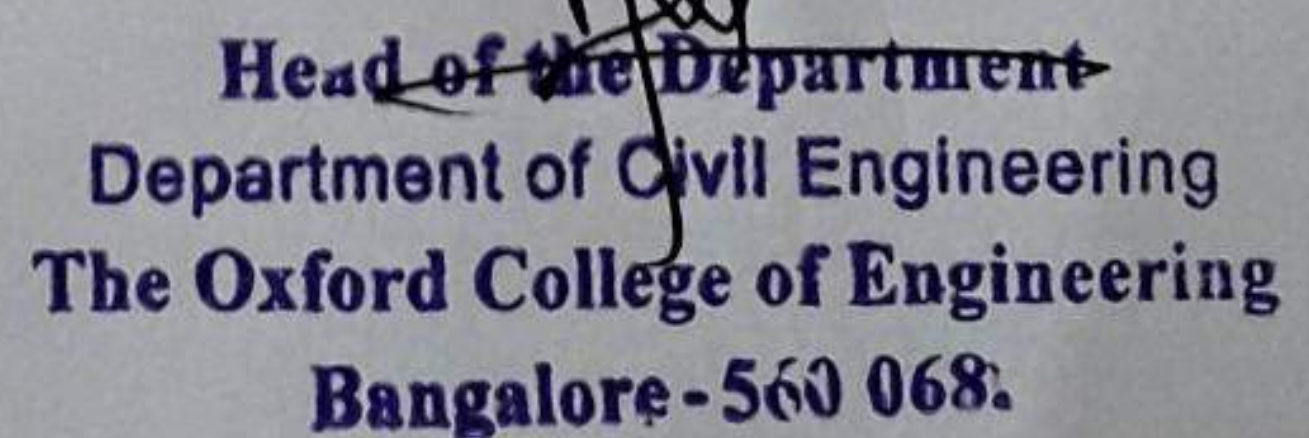 Head of the Department
Department of Civil Engineering
The Oxford College of Engineering
Bangalore - 560 068.